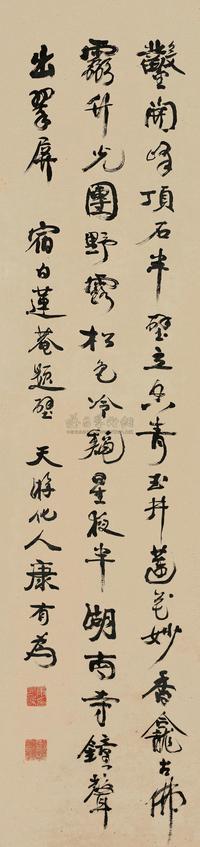 鑿開峰頂石半壁立空青玉井蓮花妙香龕古佛
靈竹光團野露松色冷星夜半湖南寺鐘聲
出翠屏 宿白蓮菴題壁 天游化人康有為